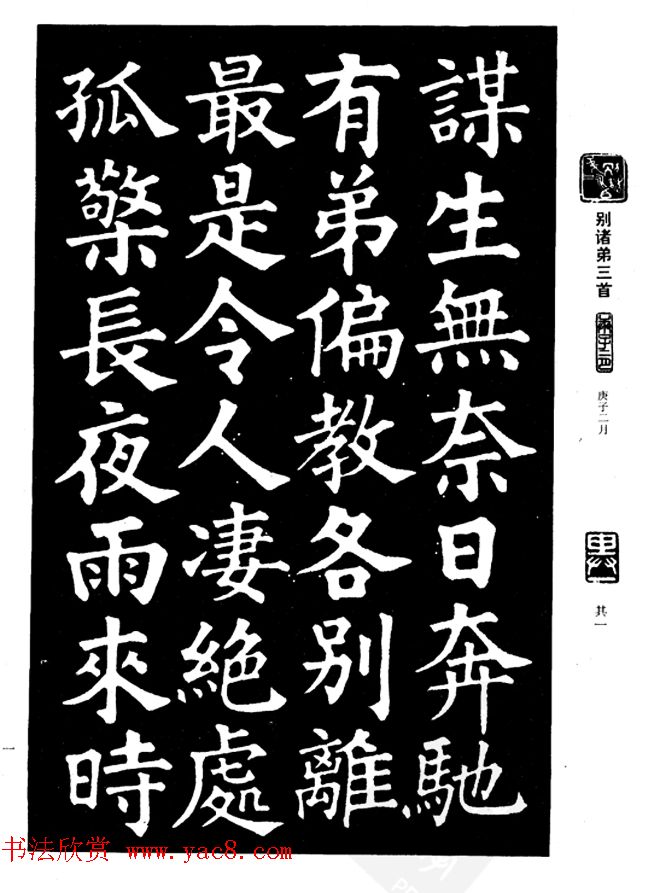 别诸弟三首
庚子二月
其一
謀生無奈日奔馳
有弟偏教各別離
最是令人凄絕處
孤檠長夜雨來時
一
书法欣赏 www.yac8.com